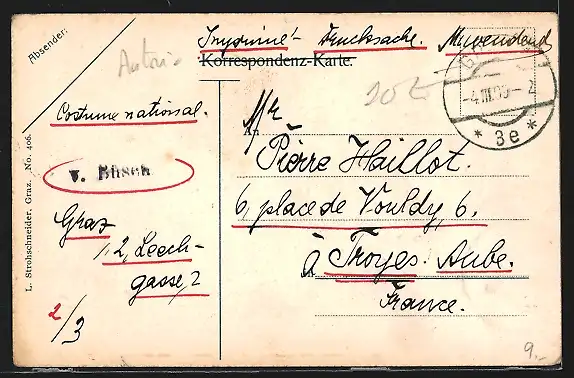 Absender:
Imprimé - Drucksache.
Korrespondenz-Karte.
Costume national.
v. Büsch
Graz
1, 2, Leech-
gasse, 2
2/3
L. Strohschneider, Graz. No. 406.
Mr
Pierre Haillot.
6, place de Vouldy, 6.
à Troyes. Aube.
France.
3e
9.-